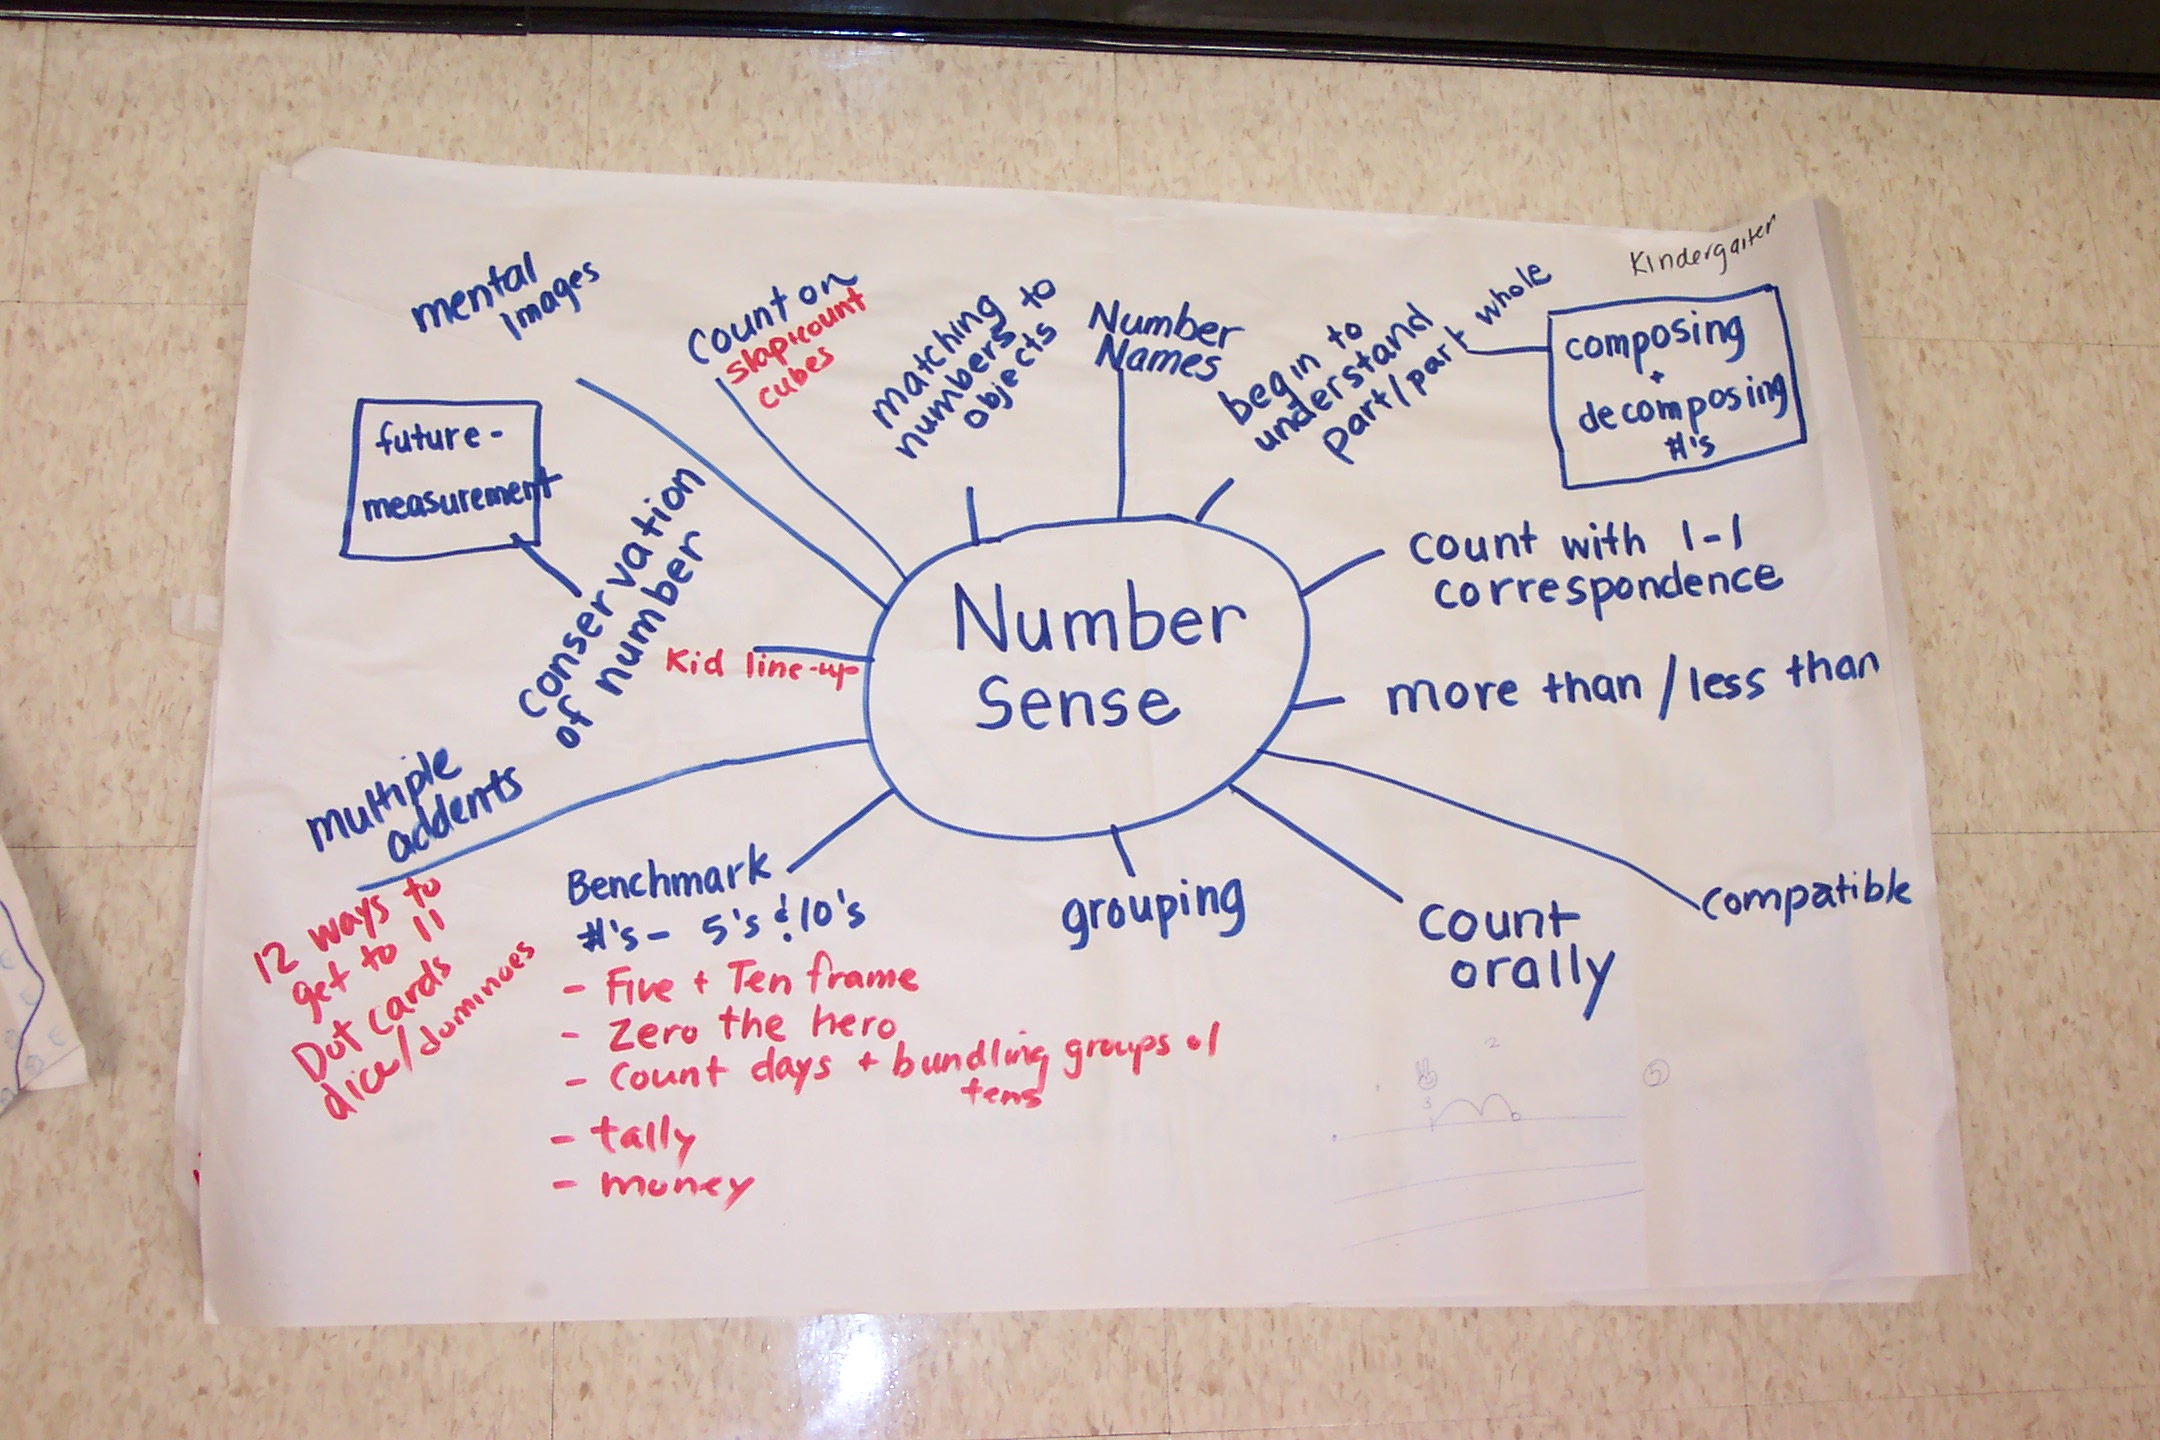 Kindergarten
mental
images
Count on
slap+count
cubes
matching
numbers to
objects
Number
Names
begin to
understand
part/part whole
composing
+
decomposing
#'s
future-
measurement
conservation
of number
Kid line-up
Number
Sense
count with 1-1
correspondence
more than / less than
compatible
count
orally
grouping
multiple
addents
12 ways to
get to 11
Dot cards
dice/dominoes
Benchmark
#'s - 5's & 10's
- Five + Ten frame
- Zero the hero
- Count days + bundling groups of
tens
- tally
- money
2
5